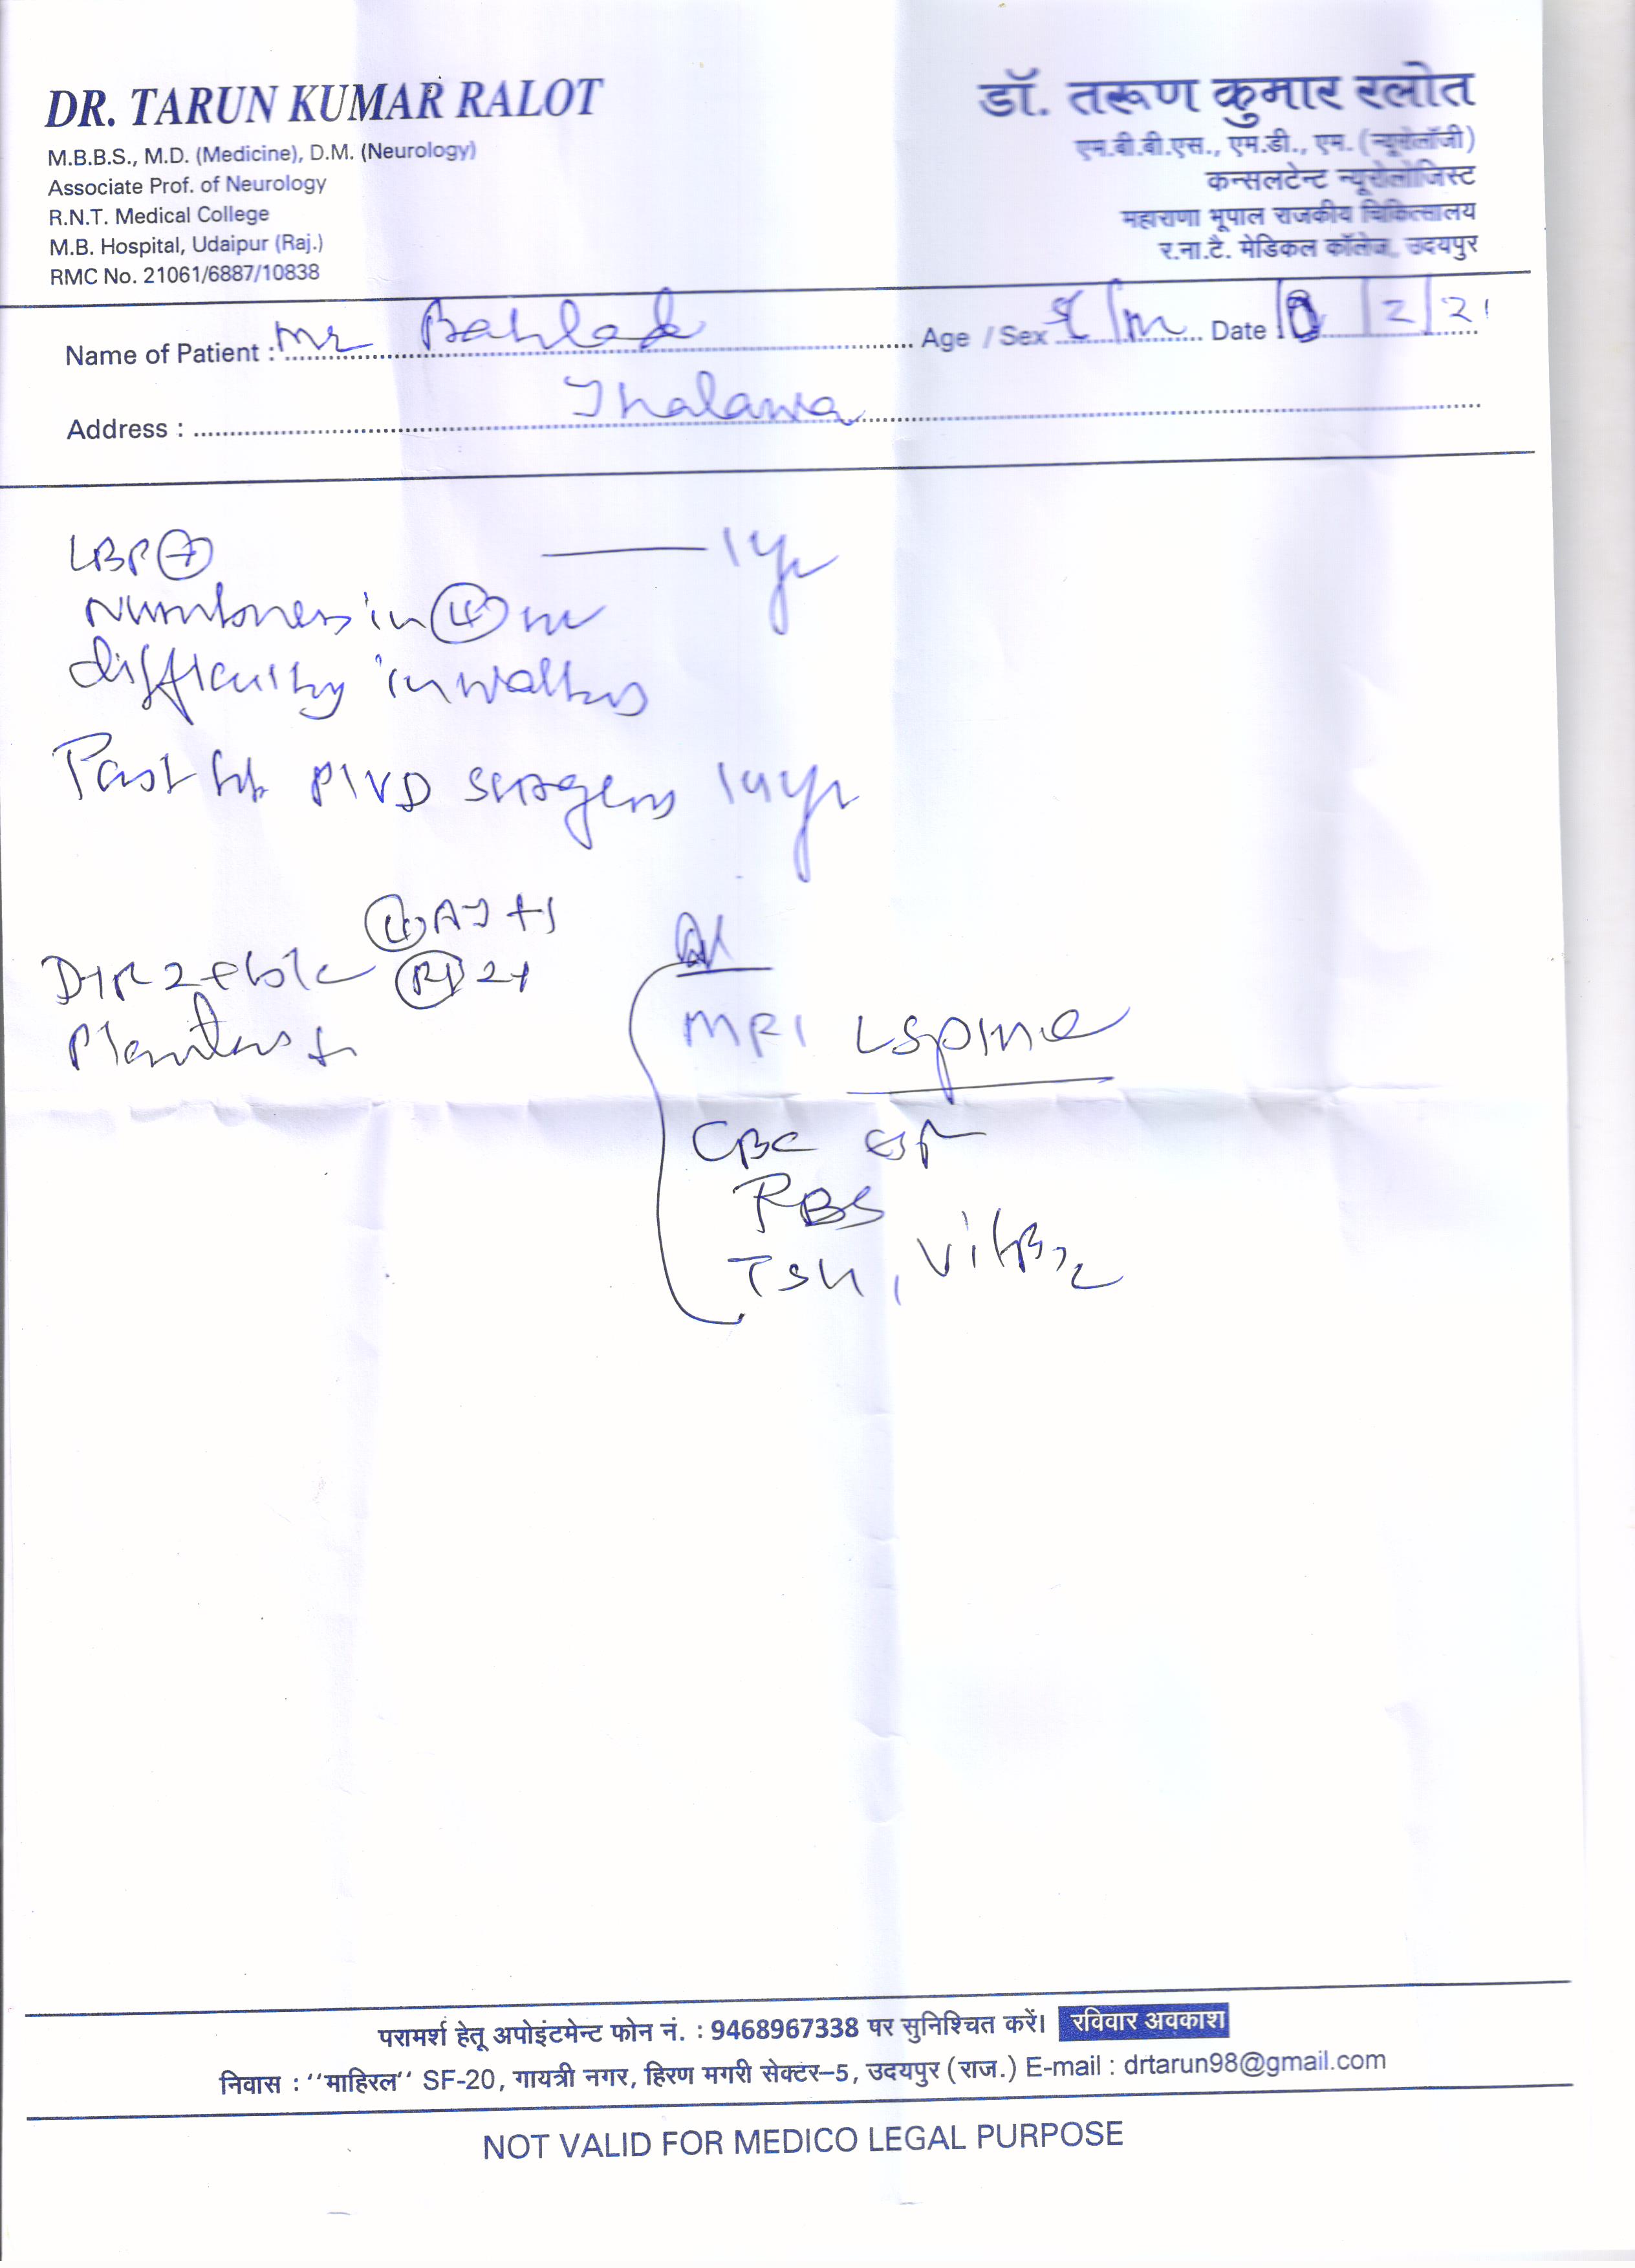 DR. TARUN KUMAR RALOT
M.B.B.S., M.D. (Medicine), D.M. (Neurology)
Associate Prof. of Neurology
R.N.T. Medical College
M.B. Hospital, Udaipur (Raj.)
RMC No. 21061/6887/10838
डॉ. तरूण कुमार रलोत
एम.बी.बी.एस., एम.डी., एम. (न्यूरोलॉजी)
कन्सलटेन्ट न्यूरोलोजिस्ट
महाराणा भूपाल राजकीय चिकित्सालय
र.ना.टै. मेडिकल कॉलेज, उदयपुर
Name of Patient : Mr Age / Sex /m Date : /2/21
Address : Jhalawa
LBP + 1yr
Numbness in Lt
difficulty in walking
Past h/o PIVD surgery 14yr
Lt AJ +1
DTR 2+ b/l Rt 2+
Plantars
MRI LSpine
CBC ESR
RBS
TSH, Vit B12
परामर्श हेतू अपोइंटमेन्ट फोन नं. : 9468967338 पर सुनिश्चित करें। रविवार अवकाश
निवास : ''माहिरल'' SF-20, गायत्री नगर, हिरण मगरी सेक्टर–5, उदयपुर (राज.) E-mail : drtarun98@gmail.com
NOT VALID FOR MEDICO LEGAL PURPOSE